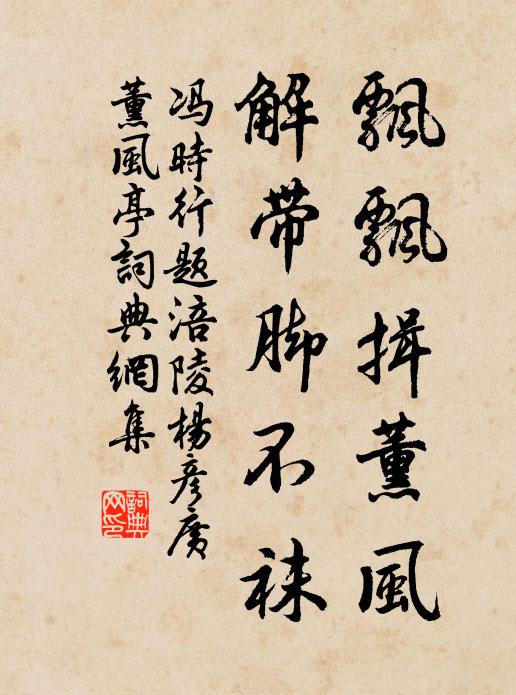 飄飄揖薰風
解带脚不袜
冯時行题涪陵楊彦廣
薰風亭詞典網集
詞典网印